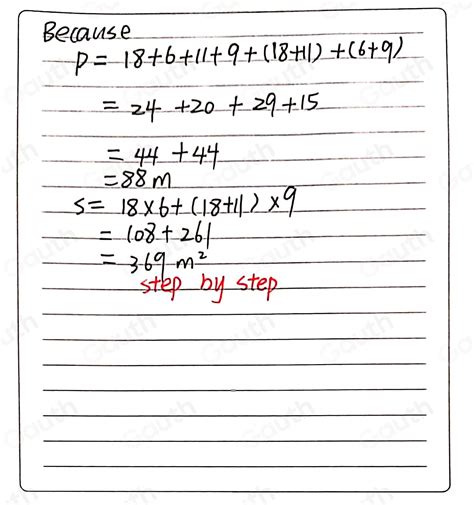 Because
P = 18+6+11+9+(18+11)+(6+9)
= 24 +20 + 29+15
= 44 + 44
=88m
S= 18×6+(18+11)×9
= 108+261
= 369 m²
step by step